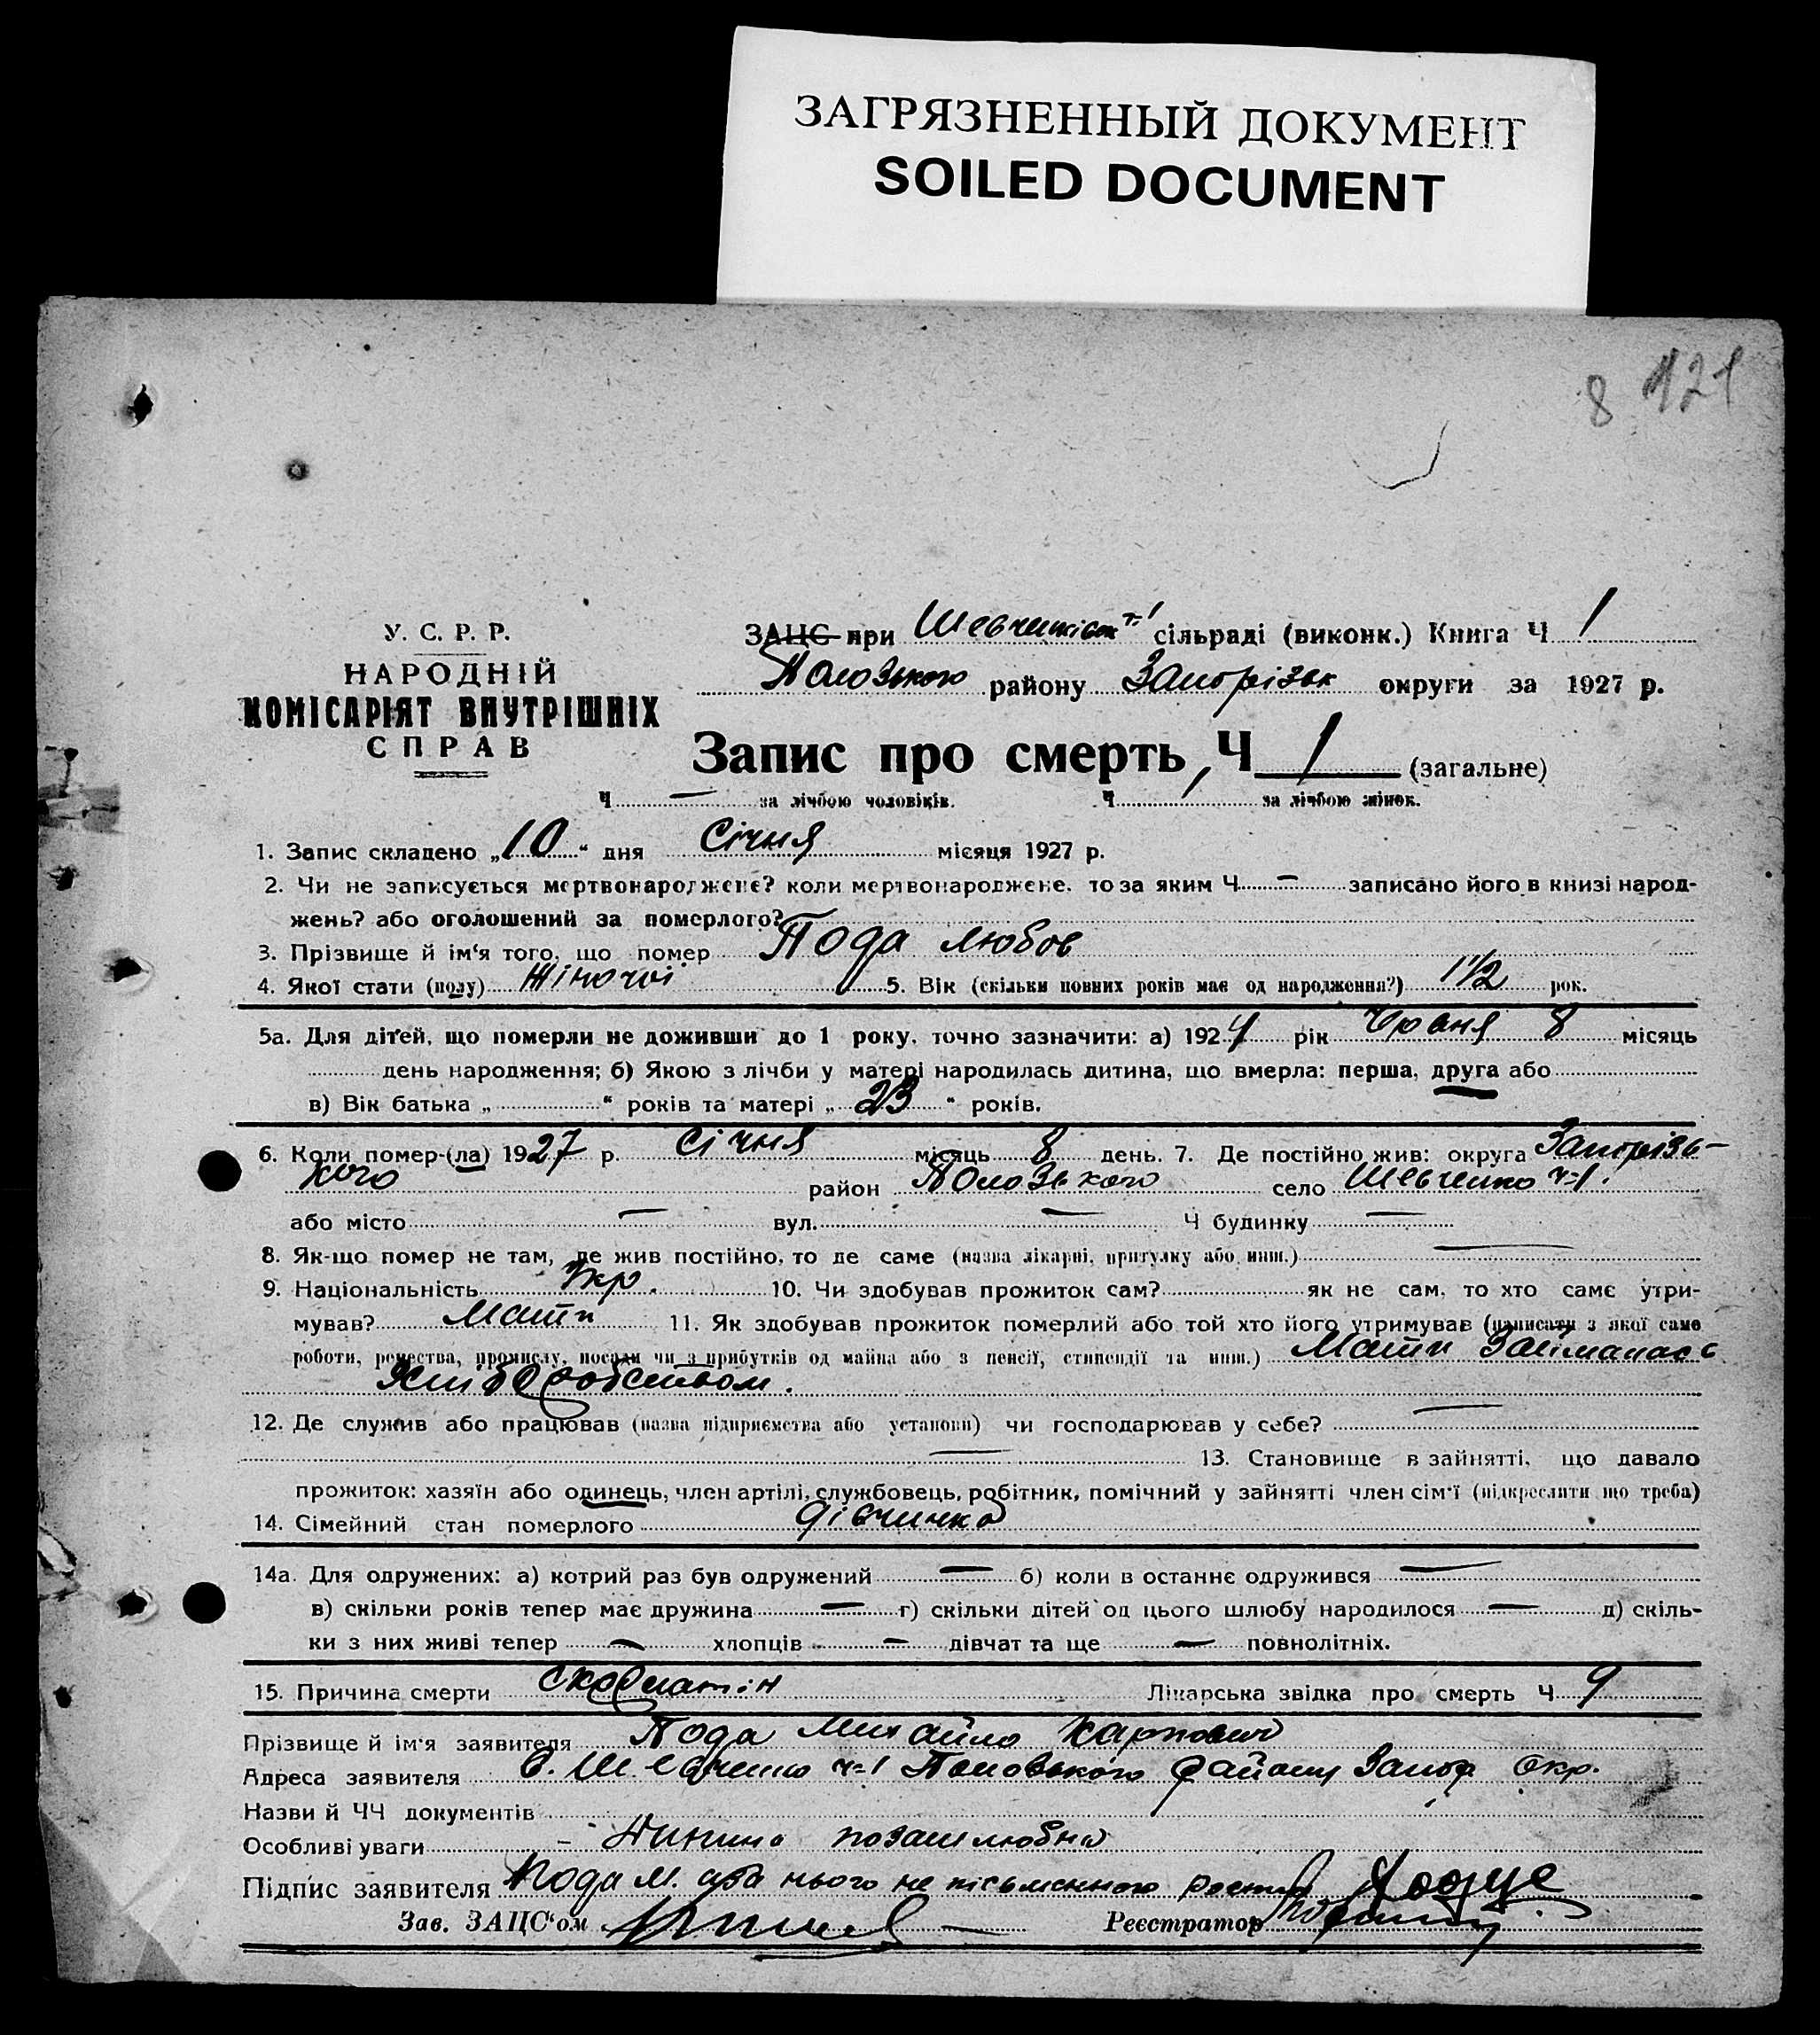 ЗАГРЯЗНЕННЫЙ ДОКУМЕНТ
SOILED DOCUMENT
8 121
У. С. Р. Р.
НАРОДНІЙ
КОМІСАРІЯТ ВНУТРІШНІХ
СПРАВ
ЗАЦС при сільраді (виконк.) Книга Ч 1
Пологського району Запорізьк округи за 1927 р.
Запис про смерть, Ч 1 (загальне)
Ч — за лічбою чоловіків. Ч за лічбою жінок.
1. Запис складено „10“ дня Січня місяця 1927 р.
2. Чи не записується мертвонароджене? коли мертвонароджене, то за яким Ч — записано його в книзі народ-
жень? або оголошений за померлого?
3. Прізвище й ім'я того, що помер Пода Любов
4. Якої стати (полу) Жіночої 5. Вік (скільки повних років має од народження?) 1 1/2 рок.
5а. Для дітей, що померли не доживши до 1 року, точно зазначити: а) 192 рік 8 місяць
день народження; б) Якою з лічби у матері народилась дитина, що вмерла: перша, друга або
в) Вік батька „ “ років та матері „ 23 “ років.
6. Коли помер-(ла) 1927 р. Січня місяць 8 день. 7. Де постійно жив: округа Запорізь-
кого район Пологського село Шевченко ч-1.
або місто — вул. — Ч будинку —
8. Як-що помер не там, де жив постійно, то де саме (назва лікарні, притулку або инш.) —
9. Національність Укр. 10. Чи здобував прожиток сам? як не сам, то хто саме утри-
мував? Мати 11. Як здобував прожиток померлий або той хто його утримував (написати з якої саме
роботи, ремества, промислу, посади чи з прибутків од майна або з пенсії, стипендії та инш.) Мати Займалась
Хліборобством.
12. Де служив або працював (назва підприємства або установи) чи господарював у себе? —
— 13. Становище в зайнятті, що давало
прожиток: хазяїн або одинець, член артілі, службовець, робітник, помічний у зайнятті член сім'ї (підкреслити що треба)
14. Сімейний стан померлого дівчинка
14а. Для одружених: а) котрий раз був одружений — б) коли в останнє одружився —
в) скільки років тепер має дружина — г) скільки дітей од цього шлюбу народилося — д) скіль-
ки з них живі тепер — хлопців — дівчат та ще — повнолітніх.
15. Причина смерти Скорлатін Лікарська звідка про смерть Ч 9
Прізвище й ім'я заявителя Пода Михайло Карпович
Адреса заявителя С. Шевченко ч-1 Пологського району Запор Окр.
Назви й ЧЧ документів
Особливі уваги — позашлюбна
Підпис заявителя Пода М. а за нього не письменного
Зав. ЗАЦС'ом Реєстратор